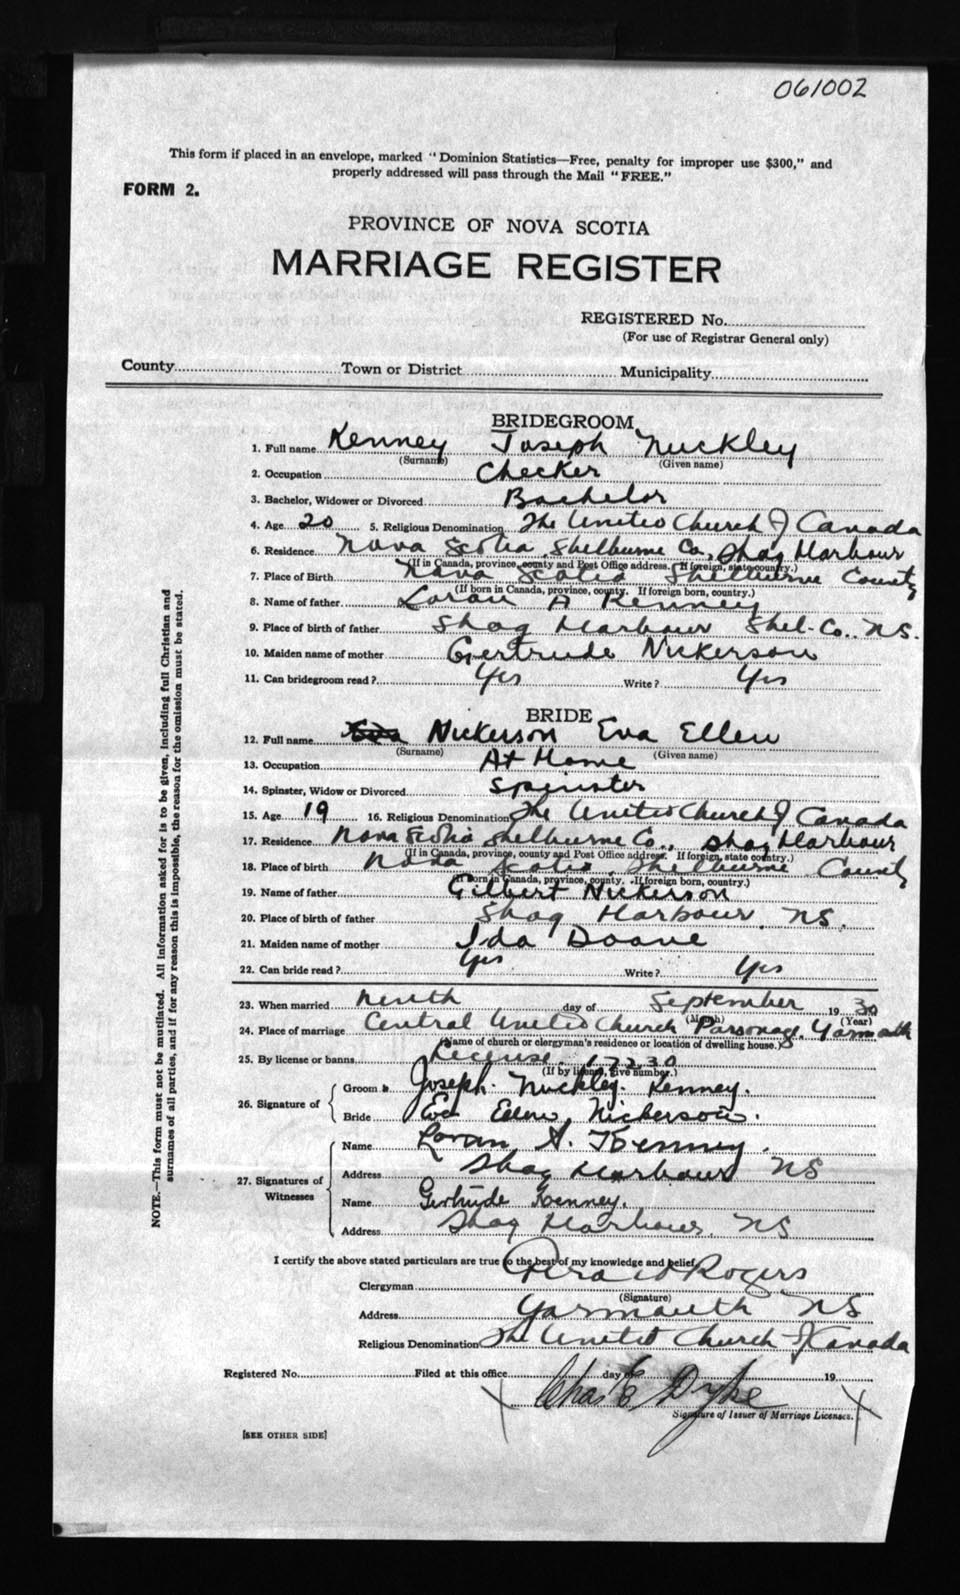 061002
This form if placed in an envelope, marked "Dominion Statistics—Free, penalty for improper use $300," and
properly addressed will pass through the Mail "FREE."
FORM 2.
PROVINCE OF NOVA SCOTIA
MARRIAGE REGISTER
REGISTERED No.
(For use of Registrar General only)
County Town or District Municipality
BRIDEGROOM
1. Full name Kenney Joseph Nuckley
(Surname) (Given name)
2. Occupation Checker
3. Bachelor, Widower or Divorced Bachelor
4. Age 20 5. Religious Denomination The United Church of Canada
6. Residence Nova Scotia, Shelburne Co., Shag Harbour
(If in Canada, province, county and Post Office address. If foreign, state country.)
7. Place of Birth Nova Scotia Shelburne County
(If born in Canada, province, county. If foreign born, country.)
8. Name of father Loran A Kenney
9. Place of birth of father Shag Harbour Shel-Co., NS.
10. Maiden name of mother Gertrude Nickerson
11. Can bridegroom read? Yes Write? Yes
BRIDE
12. Full name Eva Nickerson Eva Ellen
(Surname) (Given name)
13. Occupation At Home
14. Spinster, Widow or Divorced Spinster
15. Age 19 16. Religious Denomination The United Church of Canada
17. Residence Nova Scotia Shelburne Co., Shag Harbour
(If in Canada, province, county and Post Office address. If foreign, state country.)
18. Place of birth Nova Scotia, Shelburne County
(If born in Canada, province, county. If foreign born, country.)
19. Name of father Gilbert Nickerson
20. Place of birth of father Shag Harbour NS.
21. Maiden name of mother Ida Doane
22. Can bride read? Yes Write? Yes
23. When married Ninth day of September 1930
(Month) (Year)
24. Place of marriage Central United Church Parsonage, Yarmouth
(Name of church or clergyman's residence or location of dwelling house.)
25. By license or banns License. 17230
(If by license, give number.)
26. Signature of Groom Joseph Nuckley Kenney.
Bride Eva Ellen Nickerson.
27. Signatures of Witnesses Name Loran A. Kenney.
Address Shag Harbour NS
Name Gertrude Kenney.
Address Shag Harbour, NS
I certify the above stated particulars are true to the best of my knowledge and belief.
Clergyman Rogers
(Signature)
Address Yarmouth NS
Religious Denomination The United Church of Canada
Registered No. Filed at this office day of 19
Chas E Dyke
Signature of Issuer of Marriage Licenses.
[SEE OTHER SIDE]
NOTE.—This form must not be mutilated. All information asked for is to be given, including full Christian and
surnames of all parties, and if for any reason this is impossible, the reason for the omission must be stated.